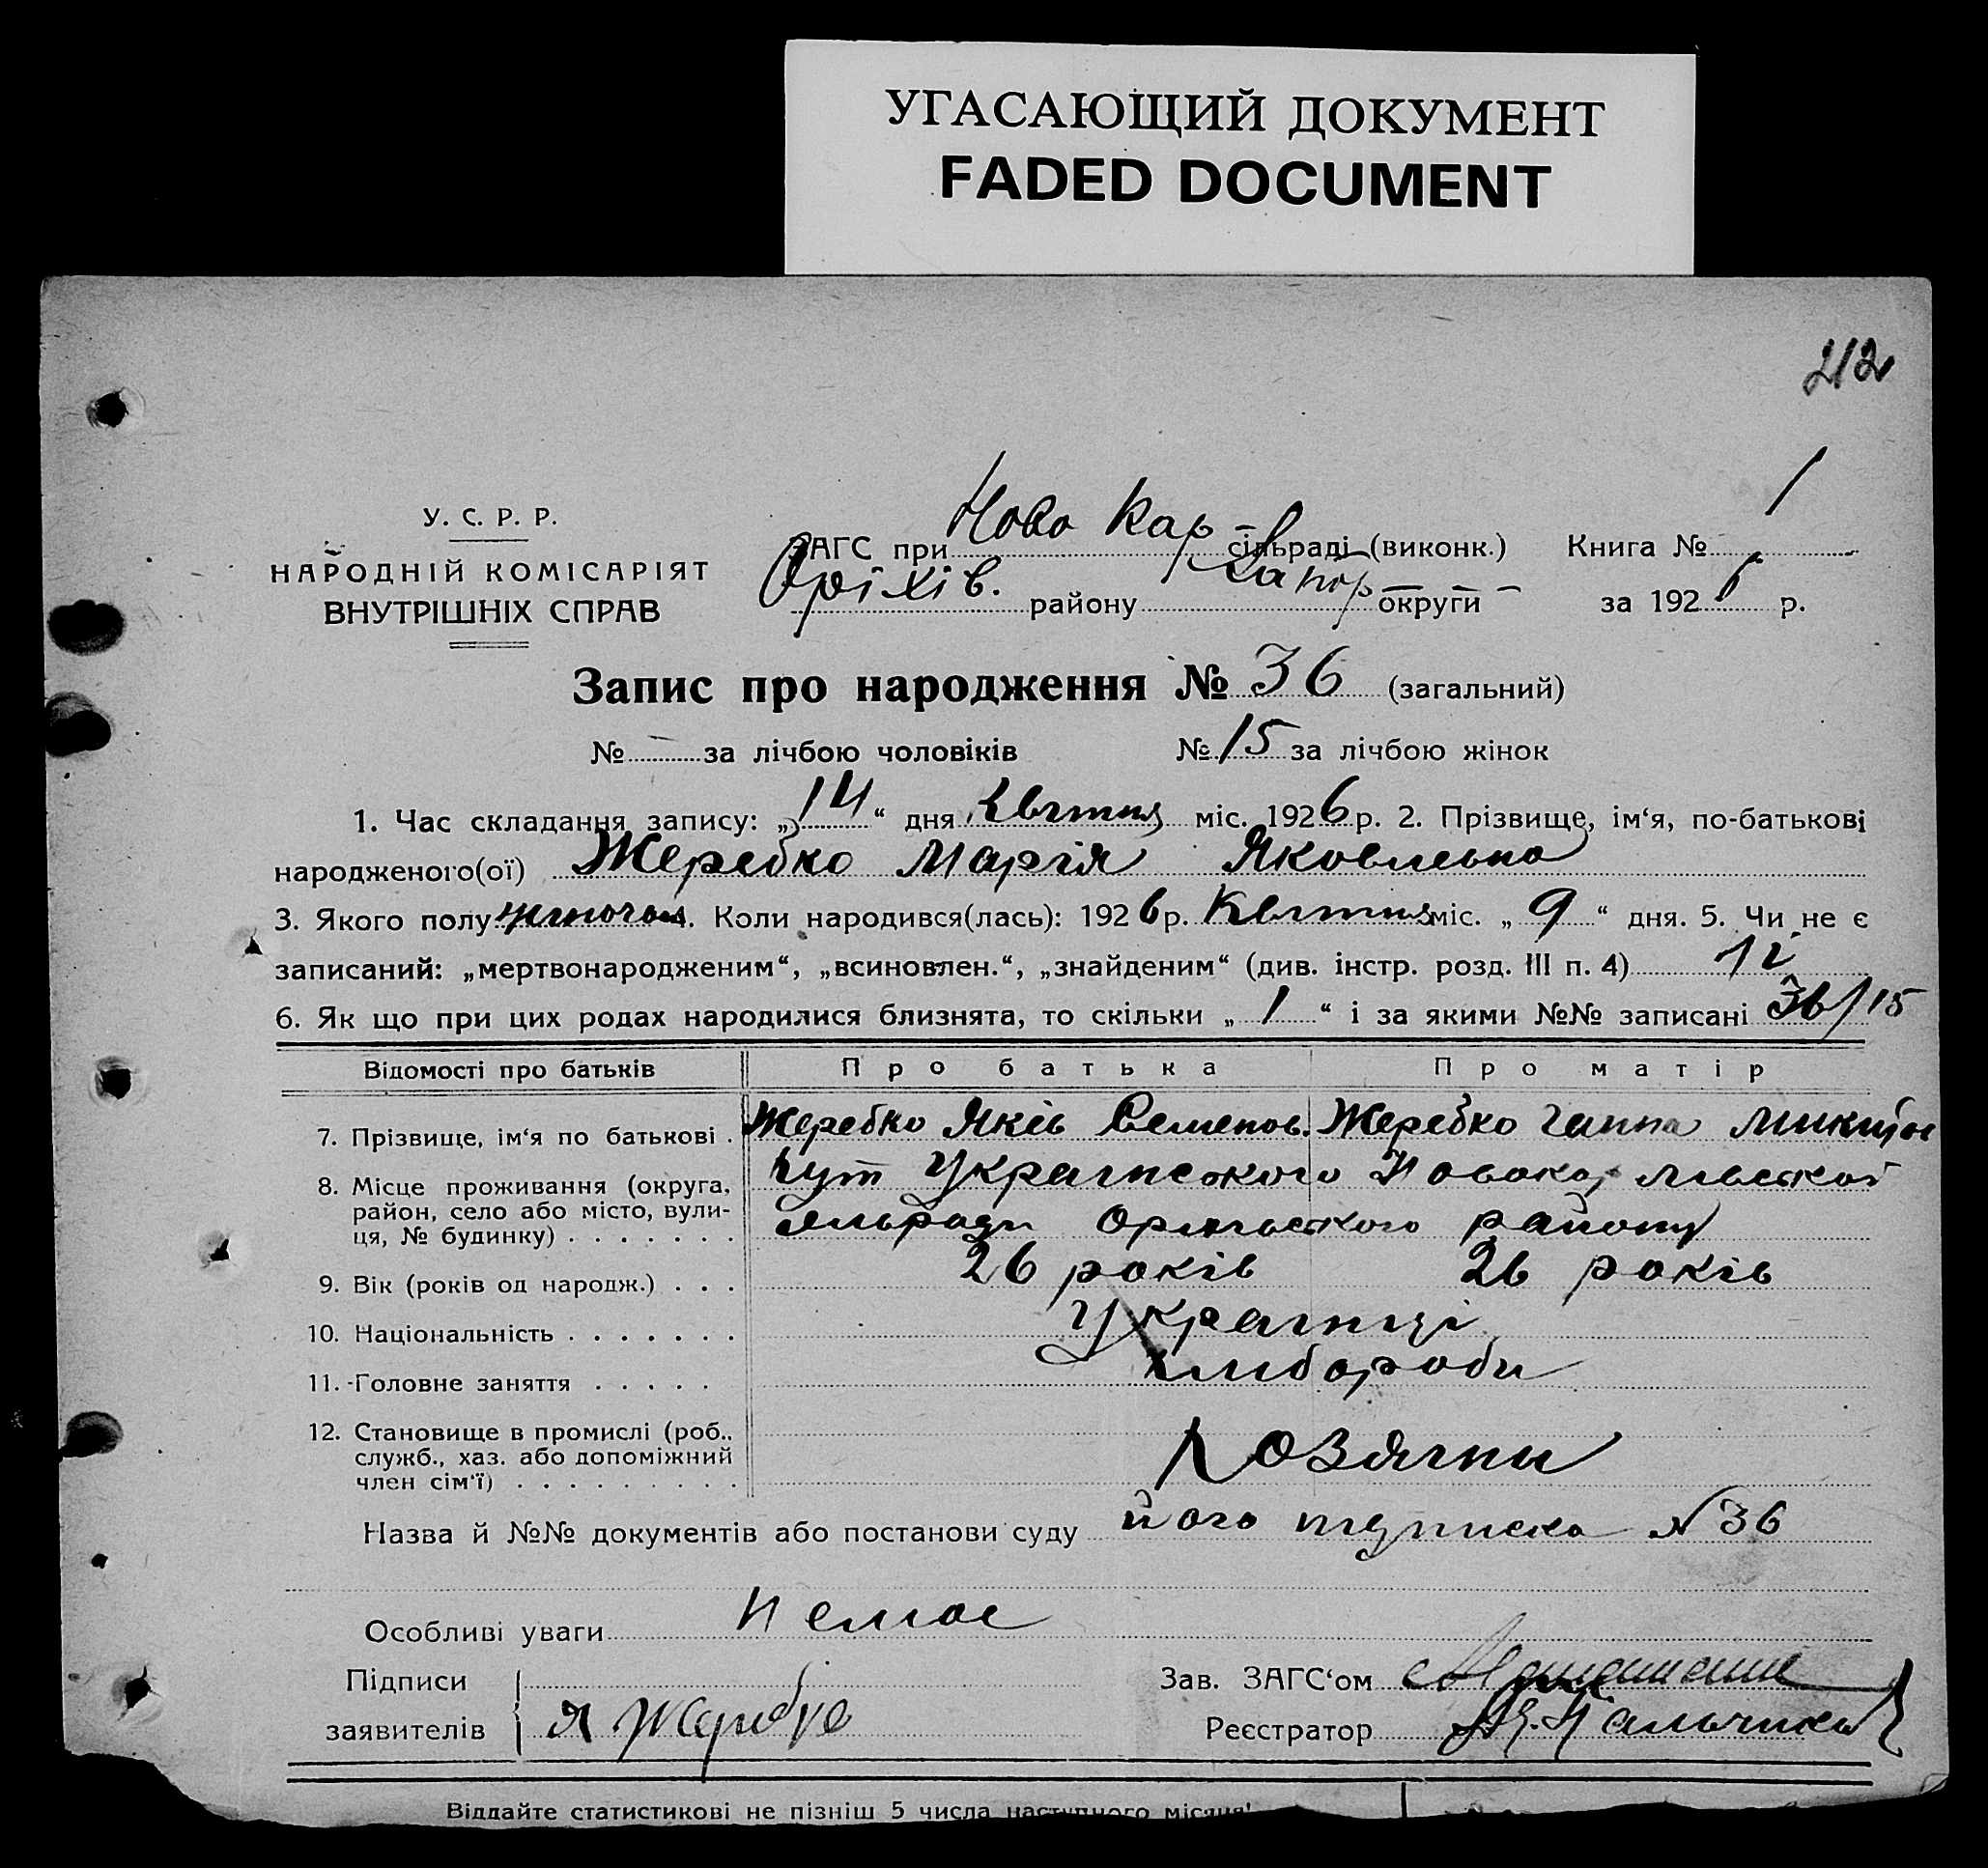 УГАСАЮЩИЙ ДОКУМЕНТ
FADED DOCUMENT
212
У. С. Р. Р.
НАРОДНІЙ КОМІСАРІЯТ
ВНУТРІШНІХ СПРАВ
ЗАГС при Ново Кар- сільраді (виконк.) Книга № 1
Оріхів. району Запор округи за 192 6 р.
Запис про народження № 36 (загальний)
№ — за лічбою чоловіків № 15 за лічбою жінок
1. Час складання запису: „ 14 “ дня Квітня міс. 1926 р. 2. Прізвище, ім‘я, по-батькові
народженого(ої) Жеребко Марія Яковлевна
3. Якого полу жіночого 4. Коли народився(лась): 1926 р. Квітня міс. „ 9 “ дня. 5. Чи не є
записаний: „мертвонародженим“, „всиновлен.“, „знайденим“ (див. інстр. розд. III п. 4) Ні
6. Як що при цих родах народилися близнята, то скільки „ 1 “ і за якими №№ записані 36/15
Відомості про батьків Про батька Про матір
7. Прізвище, ім‘я по батькові . Жеребко Яків Семенов. Жеребко Ганна Микит
8. Місце проживання (округа, хут Українського Новокарлівської
район, село або місто, вули- сільради Оріхівського району
ця, № будинку) . . . . . . .
9. Вік (років од народж.) . . . 26 років 26 років
10. Національність . . . . . . . Українці
11. Головне заняття . . . . . хлібороби
12. Становище в промислі (роб.,
служб., хаз. або допоміжний Хозяїни
член сім‘ї) . . . . . . . . .
Назва й №№ документів або постанови суду його підписка № 36
Особливі уваги Немає
Підписи Зав. ЗАГС‘ом
заявителів Я Жеребко Реєстратор
Віддайте статистикові не пізніш 5 числа наступного місяця!